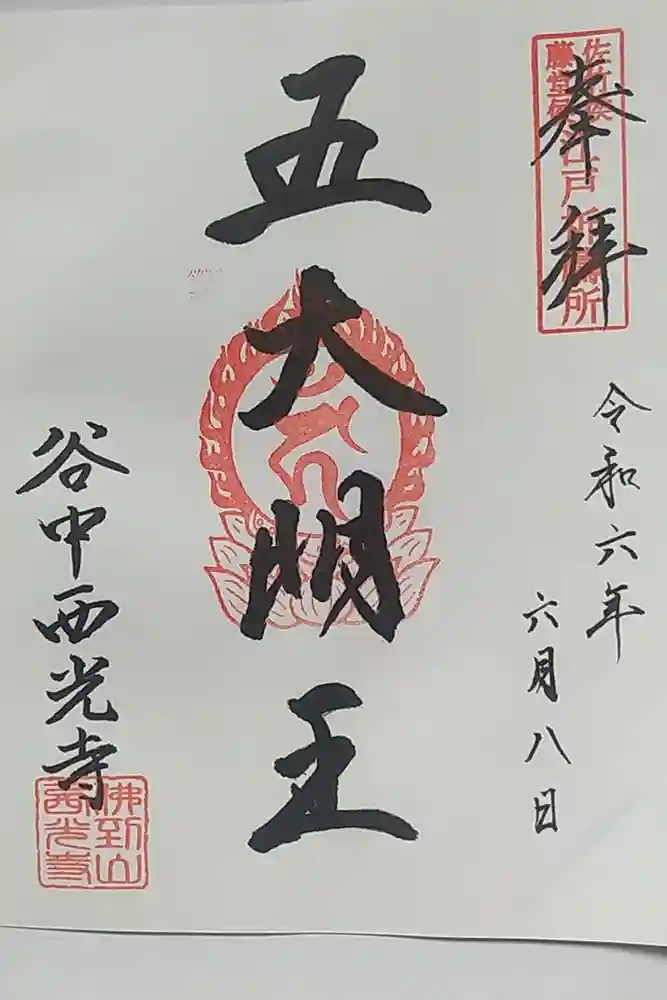 奉拝
佐竹侯
藤堂侯
江戸祈禱所
令和六年
六月八日
五大明王
谷中西光寺
佛到山
西光寺